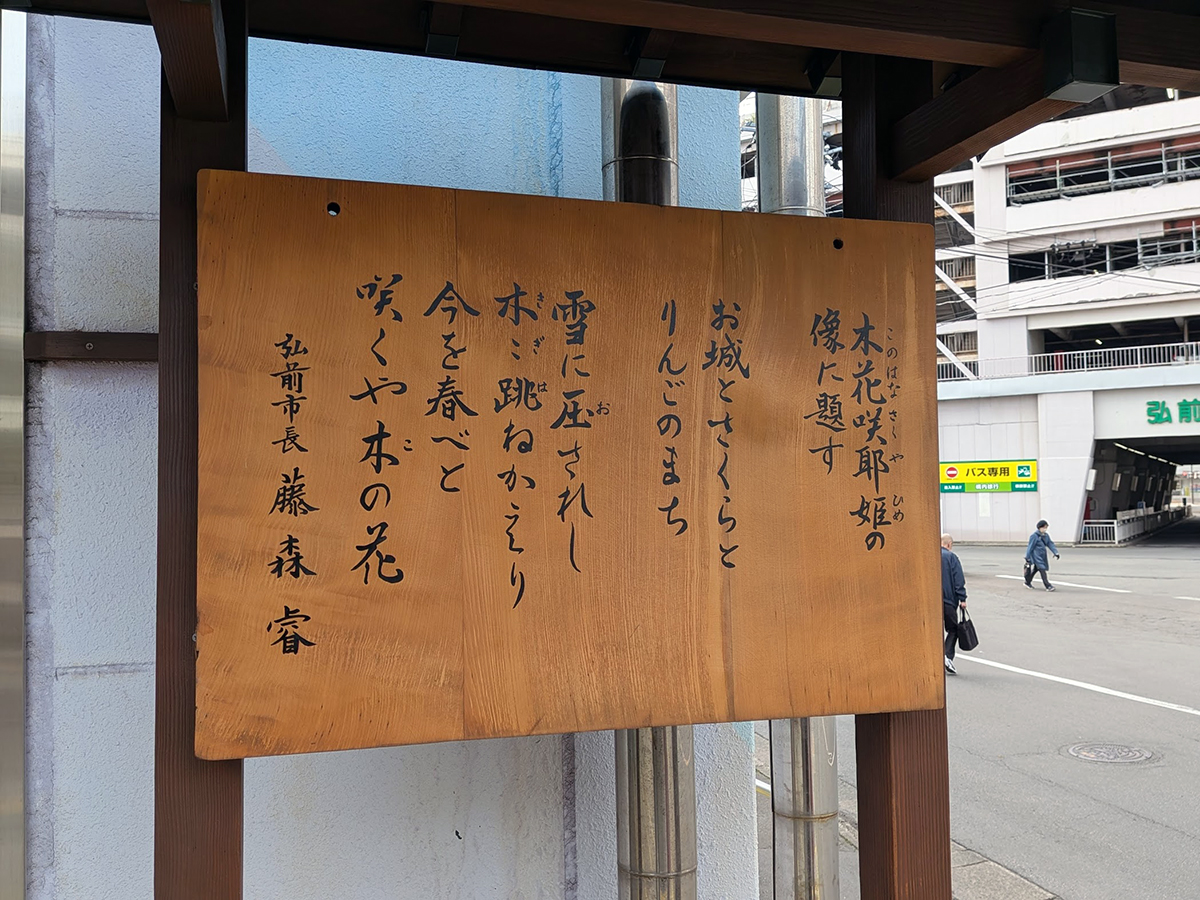 木花咲耶姫の
このはなさくやひめ
像に題す
お城とさくらと
りんごのまち
雪に圧されし
お
木〻跳ねかえり
きぎは
今を春べと
咲くや木の花
こ
弘前市長 藤森睿
バス専用
弘前